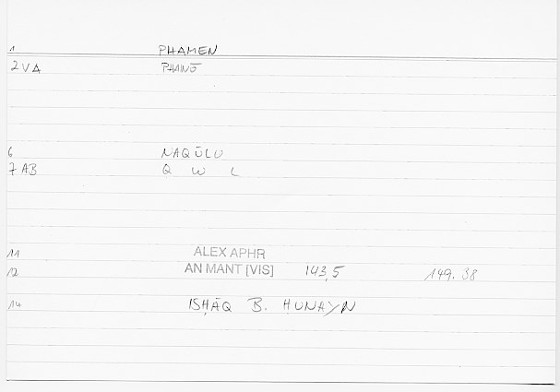 1 PHAMEN
2 VA PHAINŌ
6 NAQŪLU
7 AB Q W L
11 ALEX APHR
12 AN MANT [VIS] 143,5 149.38
14 ISḤĀQ B. HUNAYN